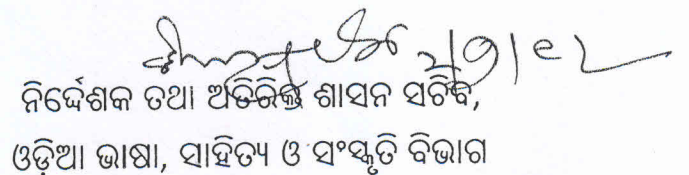 ନିର୍ଦ୍ଦେଶକ ତଥା ଅତିରିକ୍ତ ଶାସନ ସଚିବ,
ଓଡ଼ିଆ ଭାଷା, ସାହିତ୍ୟ ଓ ସଂସ୍କୃତି ବିଭାଗ